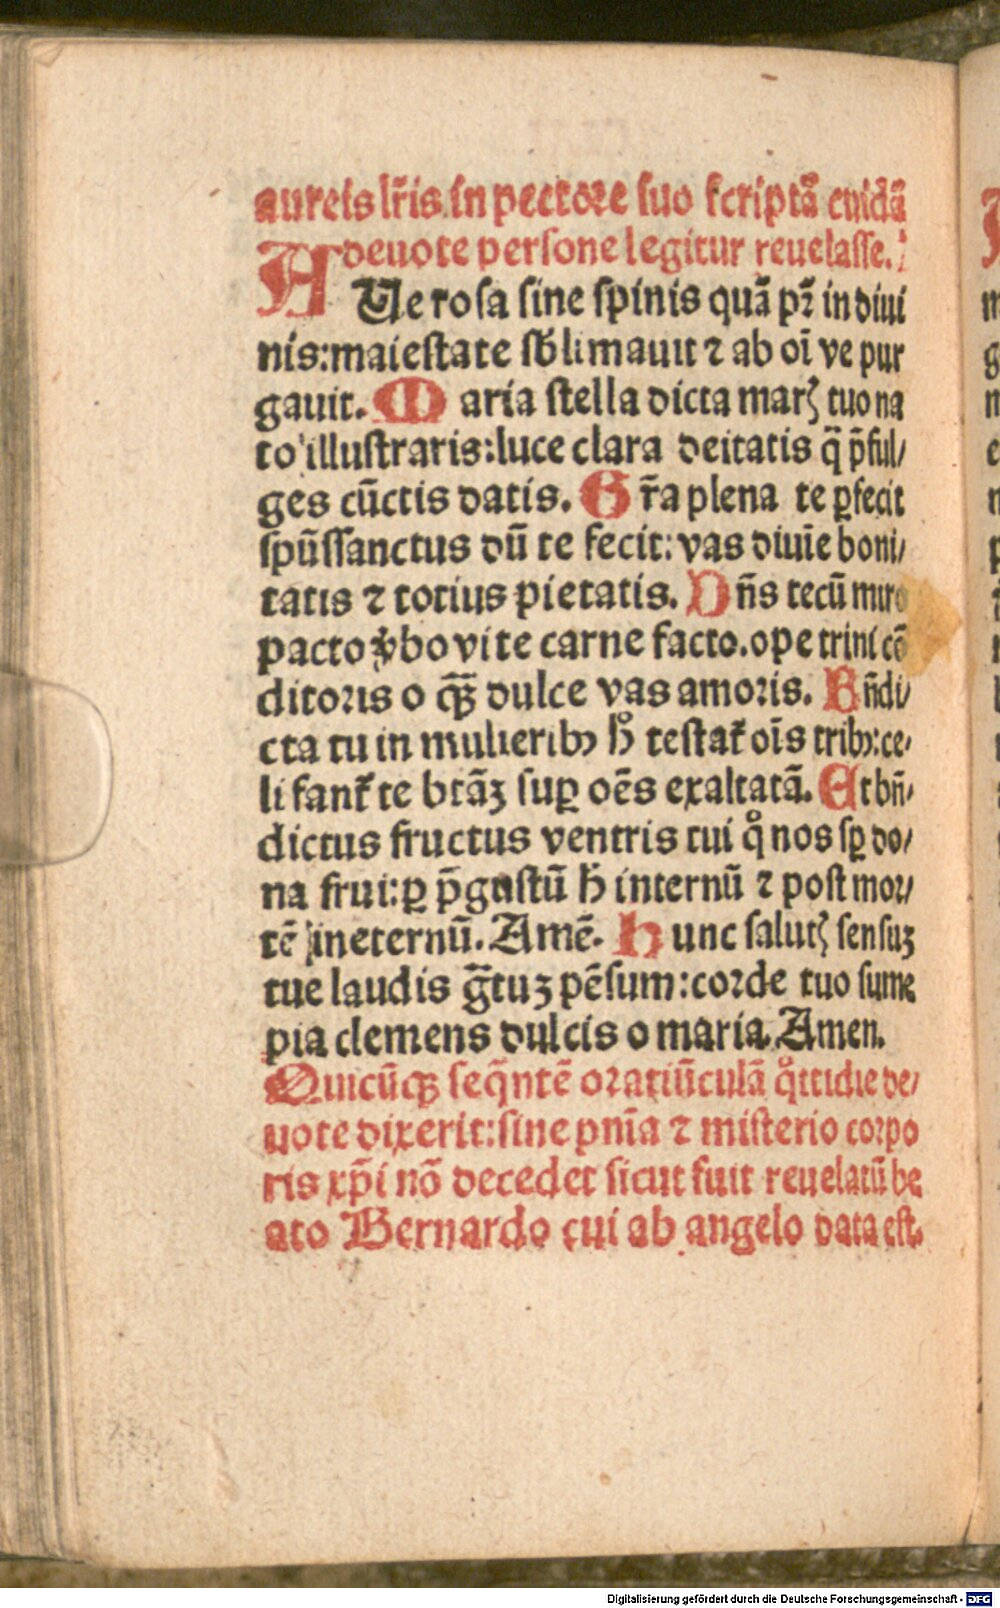 aureis lr̃is in pectore suo scriptã cuidã
deuote persone legitur reuelasse.
AUe rosa sine spinis quã pr̃ in diui
nis:maiestate sb̃limauit ⁊ ab oĩ ve pur
gauit. Maria stella dicta marꝭ tuo na
to illustraris:luce clara deitatis q̃ p̃ful/
ges cũctis datis. Gr̃a plena te ꝑfecit
spũssanctus dũ te fecit: vas diuĩe boni/
tatis ⁊ totius pietatis. Dñs tecũ miro
pacto v̾bo vite carne facto.ope trini cõ
ditoris o qꝫ̃ dulce vas amoris. Bñdi/
cta tu in mulieribꝰ hͦ testat̃ oĩs tribꝰ:ce/
li fant̃ te btãꝫ suꝑ oẽs exaltatã. Et bñ/
dictus fructus ventris tui qͦ nos sꝑ do/
na frui:ꝑ p̃gustũ h̃ internũ ⁊ post mor/
tẽ ineternũ. Amẽ. Hunc salutꝭ sensuꝫ
tue laudis g̃tuꝫ pẽsum:corde tuo sume
pia clemens dulcis o maria. Amen.
Quicũqꝫ seq̃ntẽ oratiũculã qͦttidie de/
uote dixerit:sine pnĩa ⁊ misterio corpo
ris xp̃i nõ decedet sicut fuit reuelatũ be
ato Bernardo cui ab angelo data est.
Digitalisierung gefördert durch die Deutsche Forschungsgemeinschaft - DFG